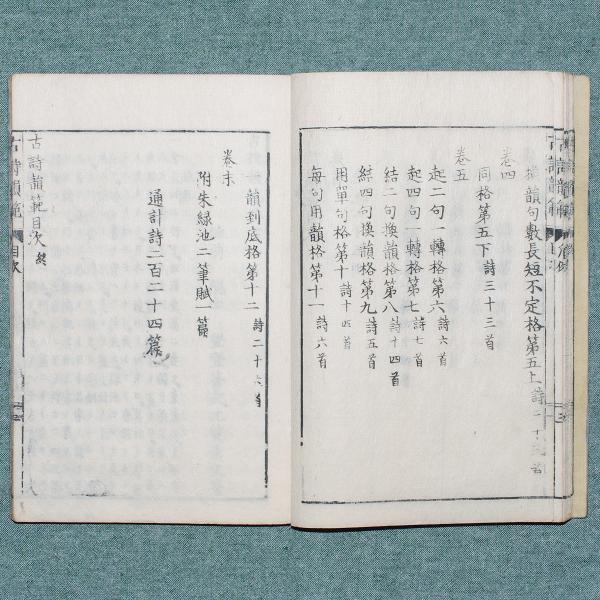 換韻句數長短不定格第五上 詩二十 首
卷四
同格第五下 詩三十三首
卷五
起二句一轉格第六 詩六首
起四句一轉格第七 詩七首
結二句換韻格第八 詩十四首
結四句換韻格第九 詩五首
用單句格第十 詩十四首
每句用韻格第十一 詩六首
一韻到底格第十二 詩二十六首
卷末
附朱緑池二筆賦一篇
通計詩二百二十四篇
古詩韻範目次 終
古詩韻範 目次